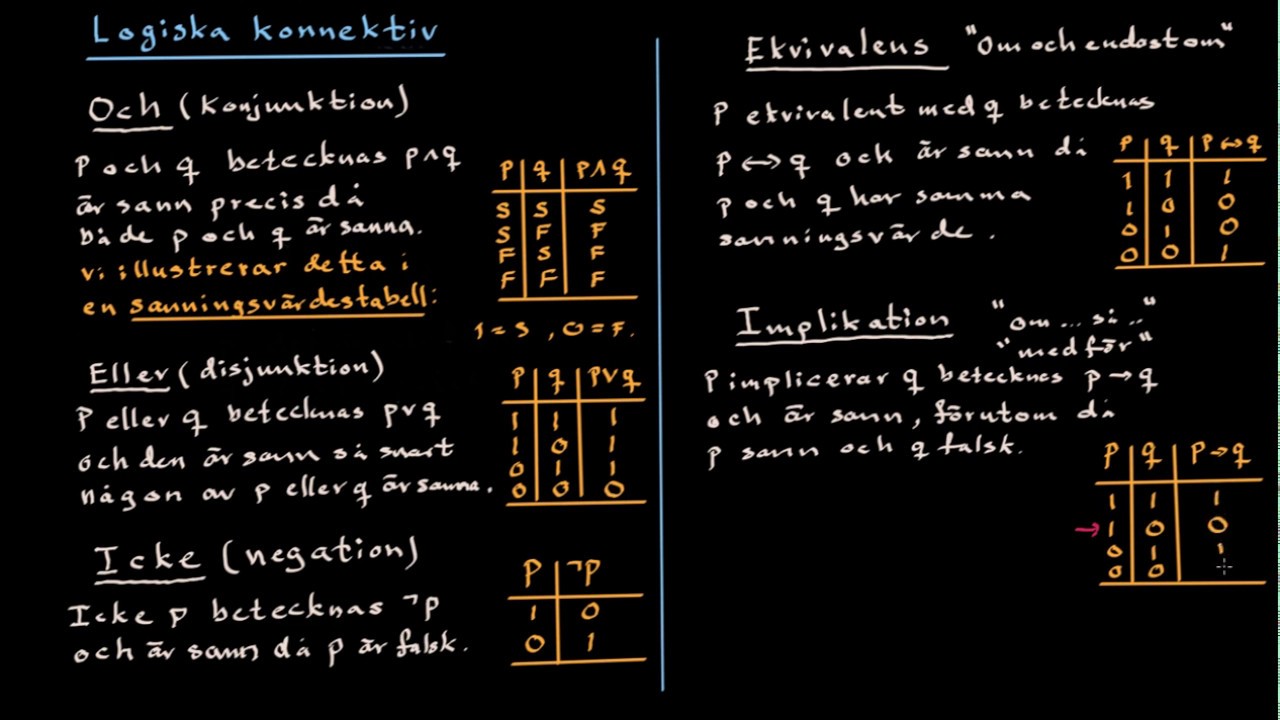 Logiska konnektiv
Och (konjunktion)
p och q betecknas p∧q
är sann precis då
både p och q är sanna.
vi illustrerar detta i
en sanningsvärdestabell:
p q p∧q
S S S
S F F
F S F
F F F
1 = S , 0 = F.
Eller (disjunktion)
p eller q betecknas p∨q
och den är sann så snart
någon av p eller q är sanna.
p q p∨q
1 1 1
1 0 1
0 1 1
0 0 0
Icke (negation)
Icke p betecknas ¬p
och är sann då p är falsk.
p ¬p
1 0
0 1
Ekvivalens "Om och endast om"
p ekvivalent med q betecknas
p ↔ q och är sann då
p och q har samma
sanningsvärde.
p q p↔q
1 1 1
1 0 0
0 1 0
0 0 1
Implikation "om ... så .."
"medför"
p implicerar q betecknas p→q
och är sann, förutom då
p sann och q falsk.
p q p→q
1 1 1
→ 1 0 0
0 1 1
0 0